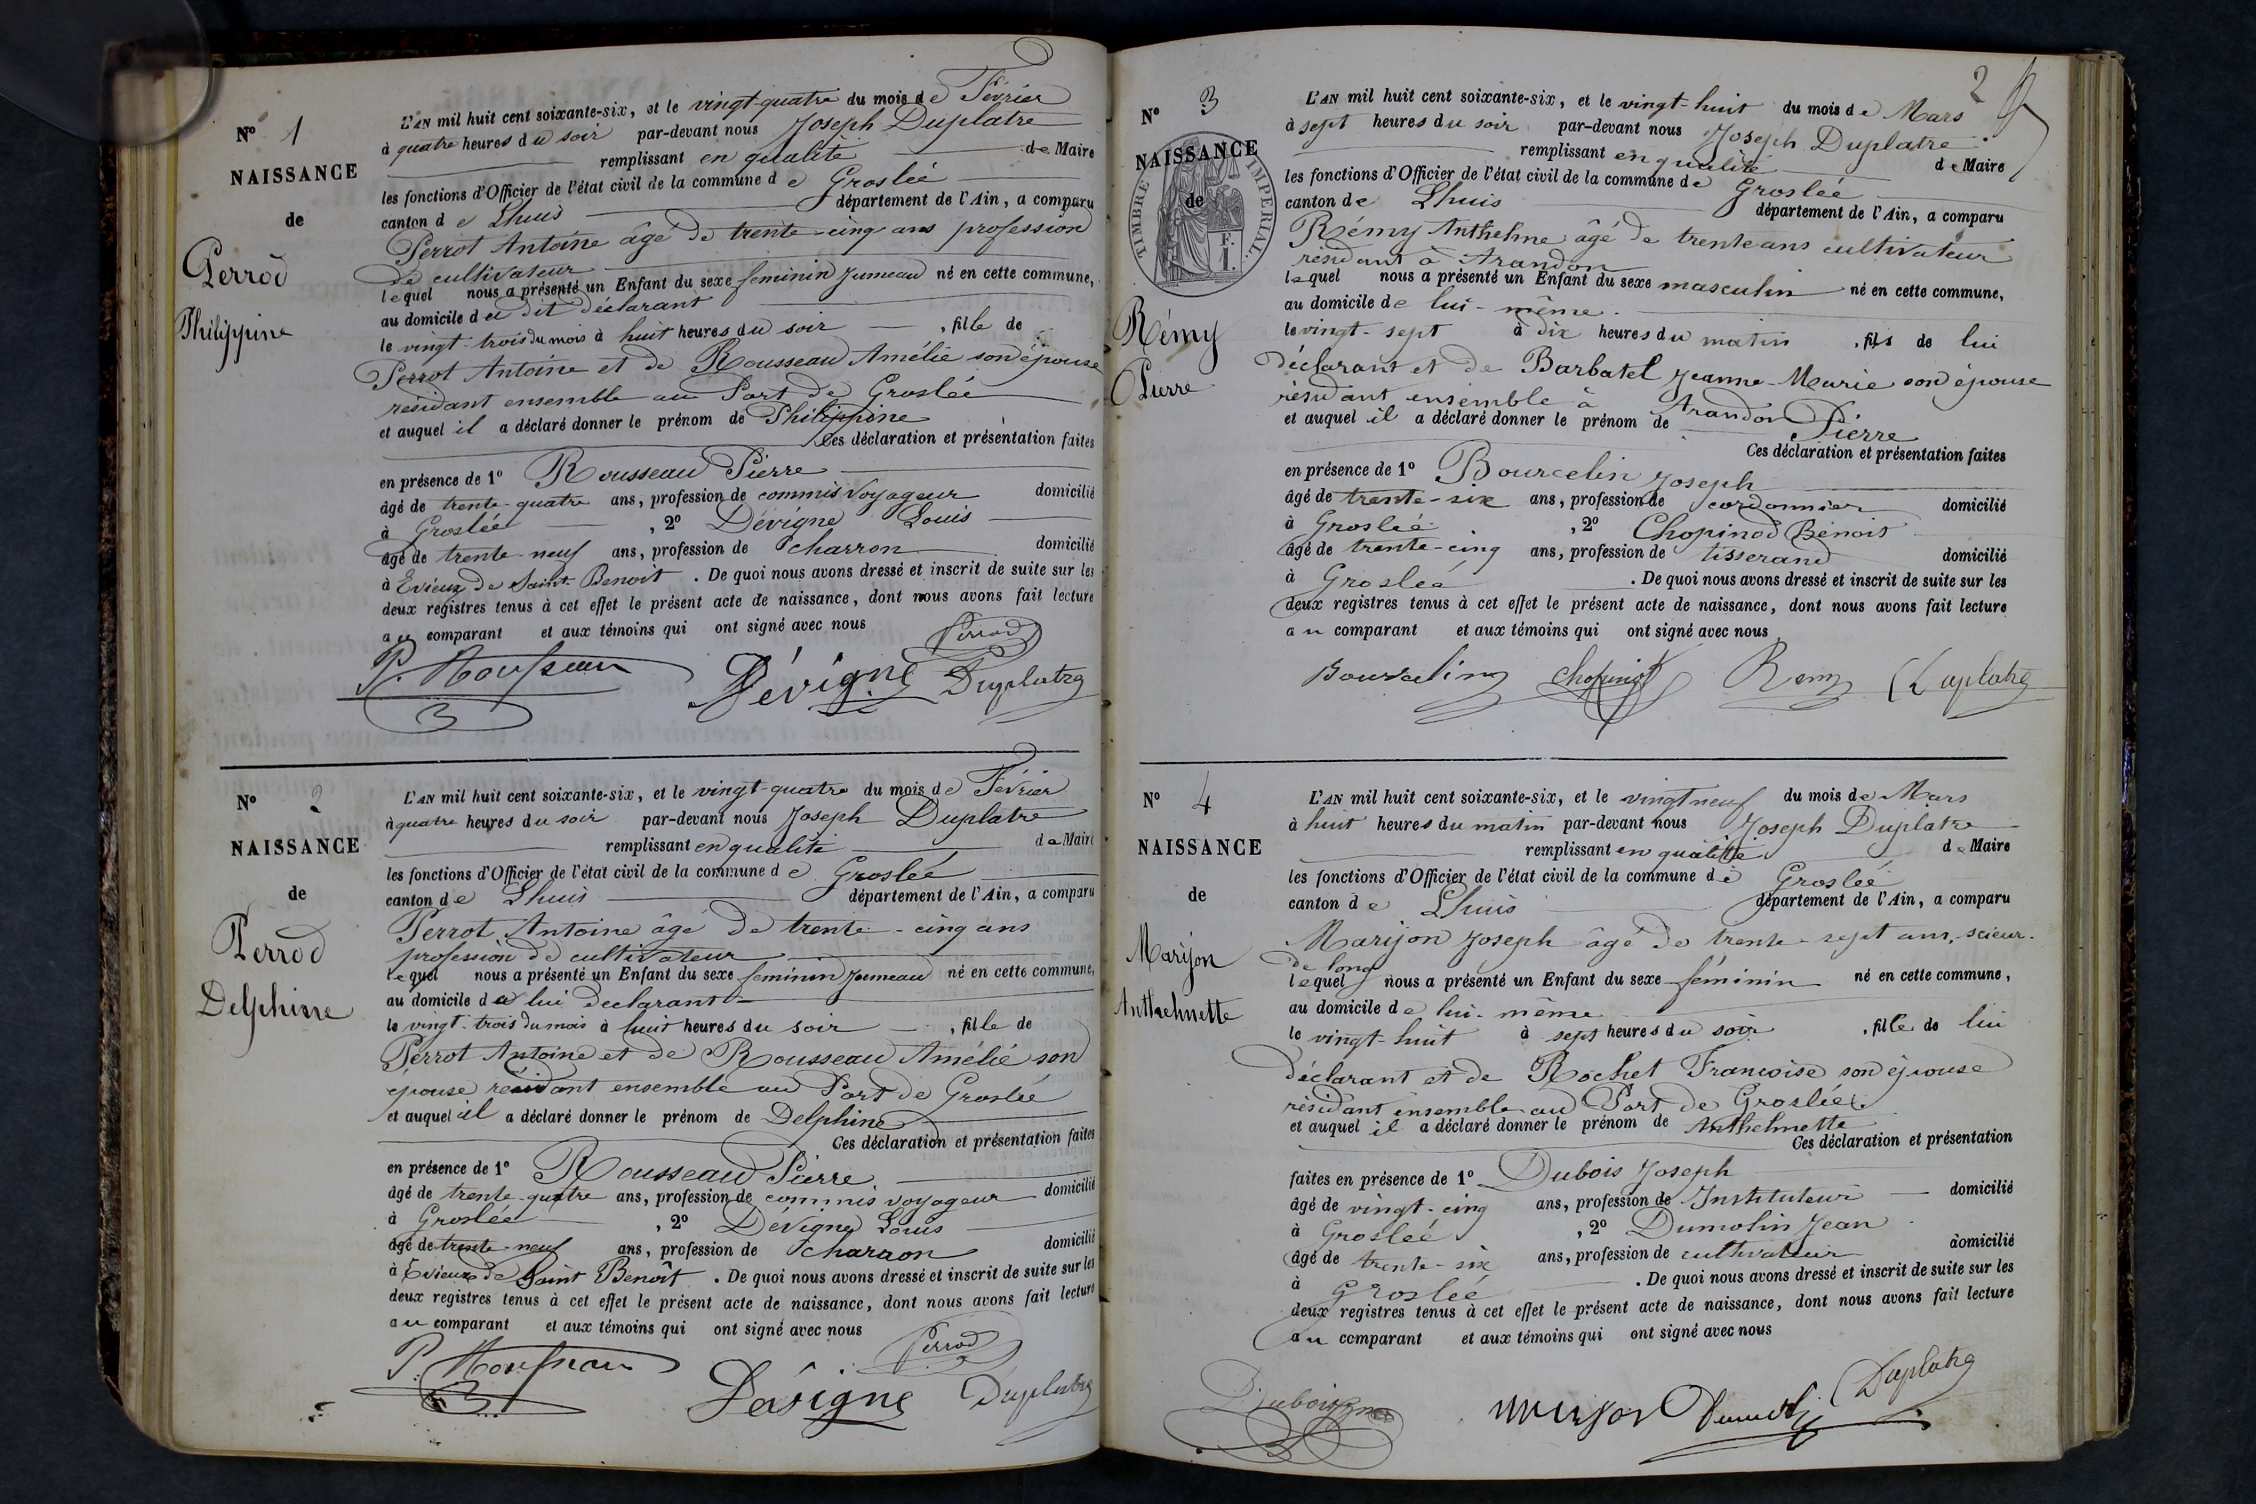 N° 1
NAISSANCE
de
Perrod
Philippine
L'AN mil huit cent soixante-six, et le vingt-quatre du mois de Février
à quatre heures du soir par-devant nous Joseph Duplatre
remplissant en qualité de Maire
les fonctions d'Officier de l'état civil de la commune de Groslée
canton de Lhuis département de l'Ain, a comparu
Perrot Antoine âgé de trente-cinq ans profession
de cultivateur
lequel nous a présenté un Enfant du sexe feminin jumeau né en cette commune,
au domicile du dit déclarant
le vingt-trois du mois à huit heures du soir, fille de
Perrot Antoine et de Rousseau Amélie son épouse
résidant ensemble au Port de Groslée
et auquel il a déclaré donner le prénom de Philippine
Ces déclaration et présentation faites
en présence de 1° Rousseau Pierre
âgé de trente-quatre ans, profession de commis voyageur domicilié
à Groslée, 2° Dévigne Louis
âgé de trente-neuf ans, profession de charron domicilié
à Evieux de Saint-Benoit. De quoi nous avons dressé et inscrit de suite sur les
deux registres tenus à cet effet le présent acte de naissance, dont nous avons fait lecture
au comparant et aux témoins qui ont signé avec nous
Perrod
P. Rousseau Dévigne Duplatre
N° 2
NAISSANCE
de
Perrod
Delphine
L'AN mil huit cent soixante-six, et le vingt-quatre du mois de Février
à quatre heures du soir par-devant nous Joseph Duplatre
remplissant en qualité de Maire
les fonctions d'Officier de l'état civil de la commune de Groslée
canton de Lhuis département de l'Ain, a comparu
Perrot Antoine âgé de trente-cinq ans
profession de cultivateur
lequel nous a présenté un Enfant du sexe feminin jumeau né en cette commune,
au domicile de lui déclarant
le vingt-trois du mois à huit heures du soir, fille de
Perrot Antoine et de Rousseau Amélie son
épouse résidant ensemble au Port de Groslée
et auquel il a déclaré donner le prénom de Delphine
Ces déclaration et présentation faites
en présence de 1° Rousseau Pierre
âgé de trente-quatre ans, profession de commis voyageur domicilié
à Groslée, 2° Dévigne Louis
âgé de trente-neuf ans, profession de charron domicilié
à Evieux de Saint Benoît. De quoi nous avons dressé et inscrit de suite sur les
deux registres tenus à cet effet le présent acte de naissance, dont nous avons fait lecture
au comparant et aux témoins qui ont signé avec nous
Perrod
P. Rousseau Dévigne Duplatre
2
N° 3
NAISSANCE
de
TIMBRE IMPERIAL.
F.
1.
Rémy
Pierre
L'AN mil huit cent soixante-six, et le vingt-huit du mois de Mars
à sept heures du soir par-devant nous Joseph Duplatre
remplissant en qualité de Maire
les fonctions d'Officier de l'état civil de la commune de Groslée
canton de Lhuis département de l'Ain, a comparu
Rémy Anthelme âgé de trente ans cultivateur
résidant à Arandon
lequel nous a présenté un Enfant du sexe masculin né en cette commune,
au domicile de lui-même.
le vingt-sept à dix heures du matin, fils de lui
déclarant et de Barbatel Jeanne-Marie son épouse
résidant ensemble à Arandon
et auquel il a déclaré donner le prénom de Pierre
Ces déclaration et présentation faites
en présence de 1° Bourcelin Joseph
âgé de trente-six ans, profession de cordonnier domicilié
à Groslée, 2° Chopinod Benoit
âgé de trente-cinq ans, profession de tisserand domicilié
à Groslée. De quoi nous avons dressé et inscrit de suite sur les
deux registres tenus à cet effet le présent acte de naissance, dont nous avons fait lecture
au comparant et aux témoins qui ont signé avec nous
Bourcelin Chopinot Remy Duplatre
N° 4
NAISSANCE
de
Marijon
Anthelmette
L'AN mil huit cent soixante-six, et le vingt neuf du mois de Mars
à huit heures du matin par-devant nous Joseph Duplatre
remplissant en qualité de Maire
les fonctions d'Officier de l'état civil de la commune de Groslée
canton de Lhuis département de l'Ain, a comparu
Marijon Joseph âgé de trente-sept ans, scieur
de long
lequel nous a présenté un Enfant du sexe féminin né en cette commune,
au domicile de lui-même
le vingt-huit à sept heures du soir, fille de lui
déclarant et de Rochet Françoise son épouse
résidant ensemble au Port de Groslée
et auquel il a déclaré donner le prénom de Anthelmette
Ces déclaration et présentation
faites en présence de 1° Dubois Joseph
âgé de vingt-cinq ans, profession de Instituteur domicilié
à Groslée, 2° Dumolin Jean
âgé de trente-six ans, profession de cultivateur domicilié
à Groslée. De quoi nous avons dressé et inscrit de suite sur les
deux registres tenus à cet effet le présent acte de naissance, dont nous avons fait lecture
au comparant et aux témoins qui ont signé avec nous
Marijon Duplatre